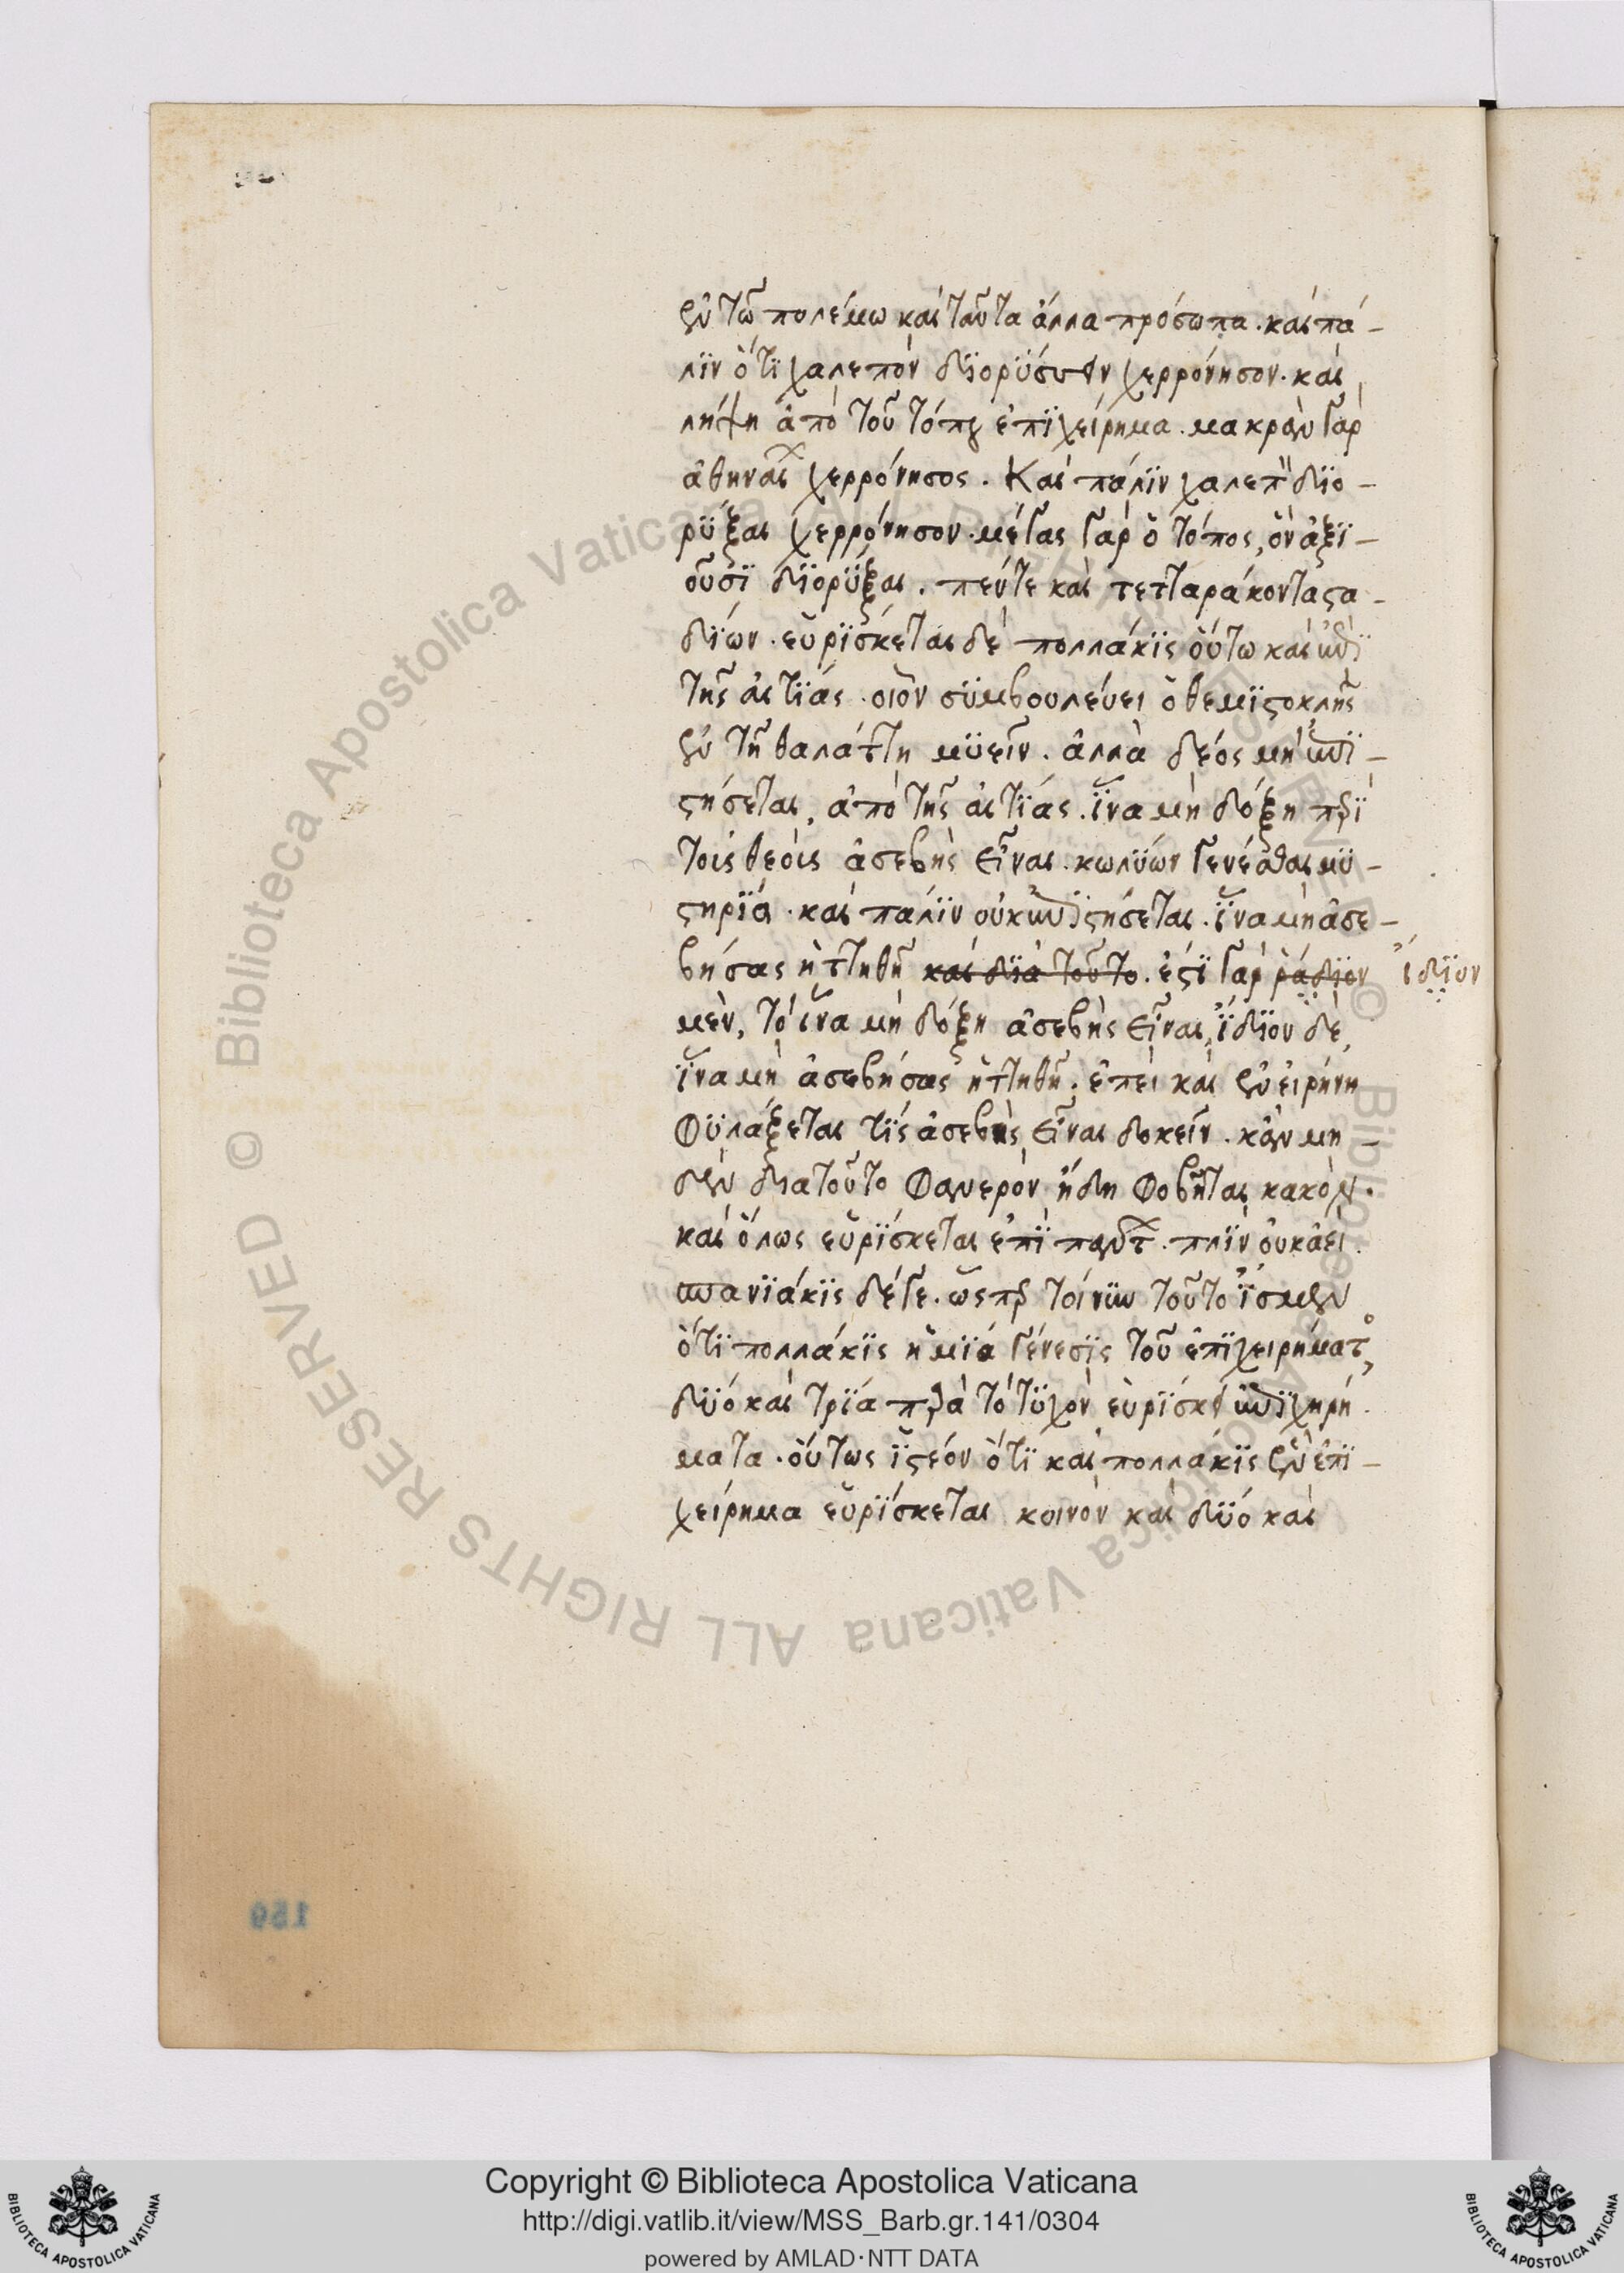 ἐν τῶ πολέμω καὶ ταῦτα ἄλλα πρόσωπα. καὶ πά-
λϊν ὅτϊ χαλεπὸν δϊορϋσσειν χερρόνησον. καὶ
λήψη ἀπὸ τοῦ τόπου ἐπϊχείρημα. μακρὰν γὰρ
ἀθηναί χερρόνησος. Καὶ πάλϊν χαλεπὸν δϊο-
ρϋξαι χερρόνησον. μέγας γὰρ ὁ τόπος, ὃν ἀξϊ-
οῦσϊ δϊορϋξαι. πέντε καὶ τετταράκοντα ϛα-
δϊων. εὑρϊσκεται δὲ πολλάκϊς οὕτω καὶ ἐπὶ
τῆς αἰτϊας. οἷον σϋμβουλεύει ὁ θεμϊϛοκλῆς
ἐν τῆ θαλάττη μϋεῖν. ἀλλὰ δέος μὴ ἐπϊ-
ϛήσεται, ἀπὸ τῆς αἰτϊας. ἵνα μὴ δόξη περϊ
τοὺς θεοὺς ἀσεβὴς εἶναι. κωλϋων γενέσθαι μϋ-
ϛηρϊα. καὶ πάλϊν οὐκ ἐπιϛήσεται. ἵνα μὴ ἀσε-
βήσας ἡττηθῆ καὶ δϊὰ τοῦτο. ἐϛϊ γὰρ ῥάδϊον ἴδϊον
μὲν, τὸ ἵνα μὴ δόξη ἀσεβὴς εἶναι, ἴδϊον δὲ,
ἵνα μὴ ἀσεβήσας ἡττηθῆ. ἐπεὶ καὶ ἐν εἰρήνη
φϋλάξεται τϊς ἀσεβὴς εἶναι δοκεῖν. κἂν μη-
δὲν διατοῦτο φανερὸν ἤδη φοβῆται κακόν.
καὶ ὅλως εὑρϊσκεται ἐπϊ παντ. πλὴν οὐκ ἀεὶ.
σπανϊάκϊς δέγε. ὥσπερ τοίνϋν τοῦτο ἴσμεν
ὅτϊ πολλάκϊς ἡ μϊα γένεσϊς τοῦ ἐπϊχειρήματος,
δϋο καὶ τρϊα παρὰ τὸ τϋχὸν εὑρϊσκει ἐπϊχηρή-
ματα. οὕτως ἰϛέον ὅτϊ καὶ πολλάκϊς ἓν ἐπϊ-
χείρημα εὑρϊσκεται κοινὸν καὶ δϋο καὶ
159
Copyright © Biblioteca Apostolica Vaticana
http://digi.vatlib.it/view/MSS_Barb.gr.141/0304
powered by AMLAD·NTT DATA
BIBLIOTECA APOSTOLICA VATICANA
BIBLIOTECA APOSTOLICA VATICANA